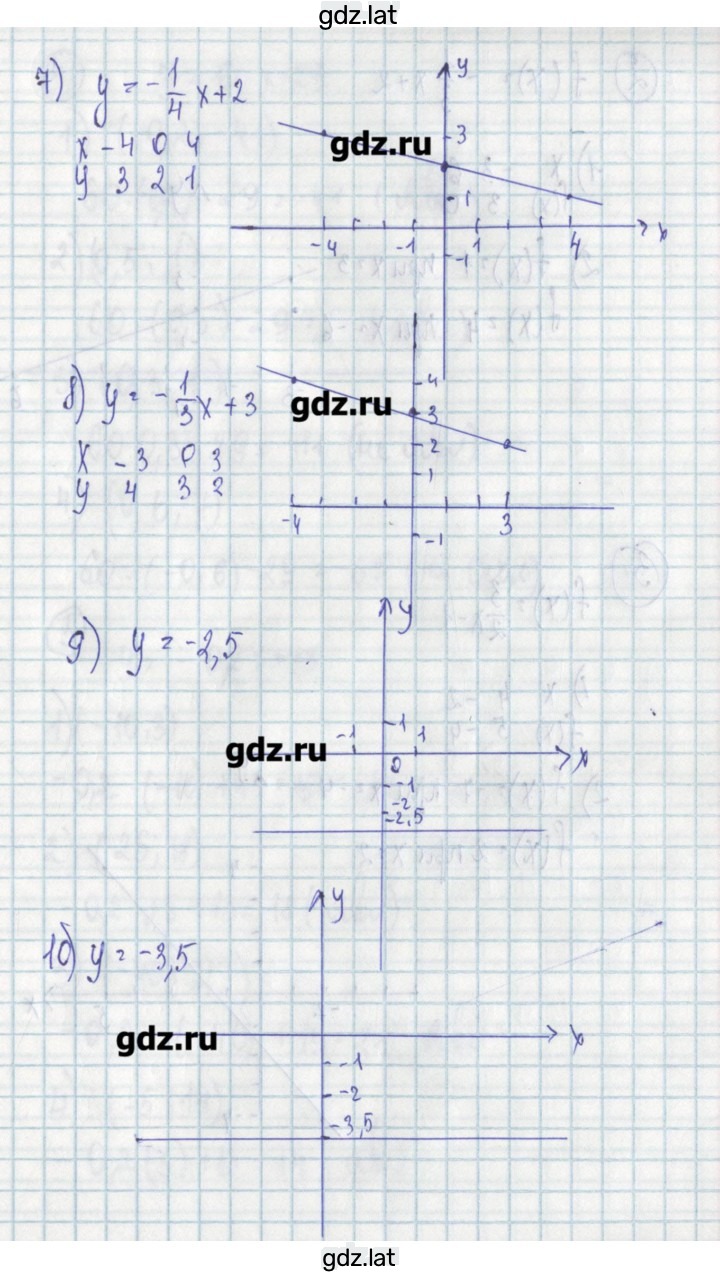 gdz.lat
7) y = -1/4 x + 2
x -4 0 4
y 3 2 1
y
3
1
-4 -1 1 4 x
-1
gdz.ru
8) y = -1/3 x + 3
x -3 0 3
y 4 3 2
4
3
2
1
-4 3
-1
gdz.ru
9) y = -2,5
y
1
-1 1
0 x
-1
-2
-2,5
gdz.ru
10) y = -3,5
y
x
-1
-2
-3,5
gdz.ru
gdz.lat